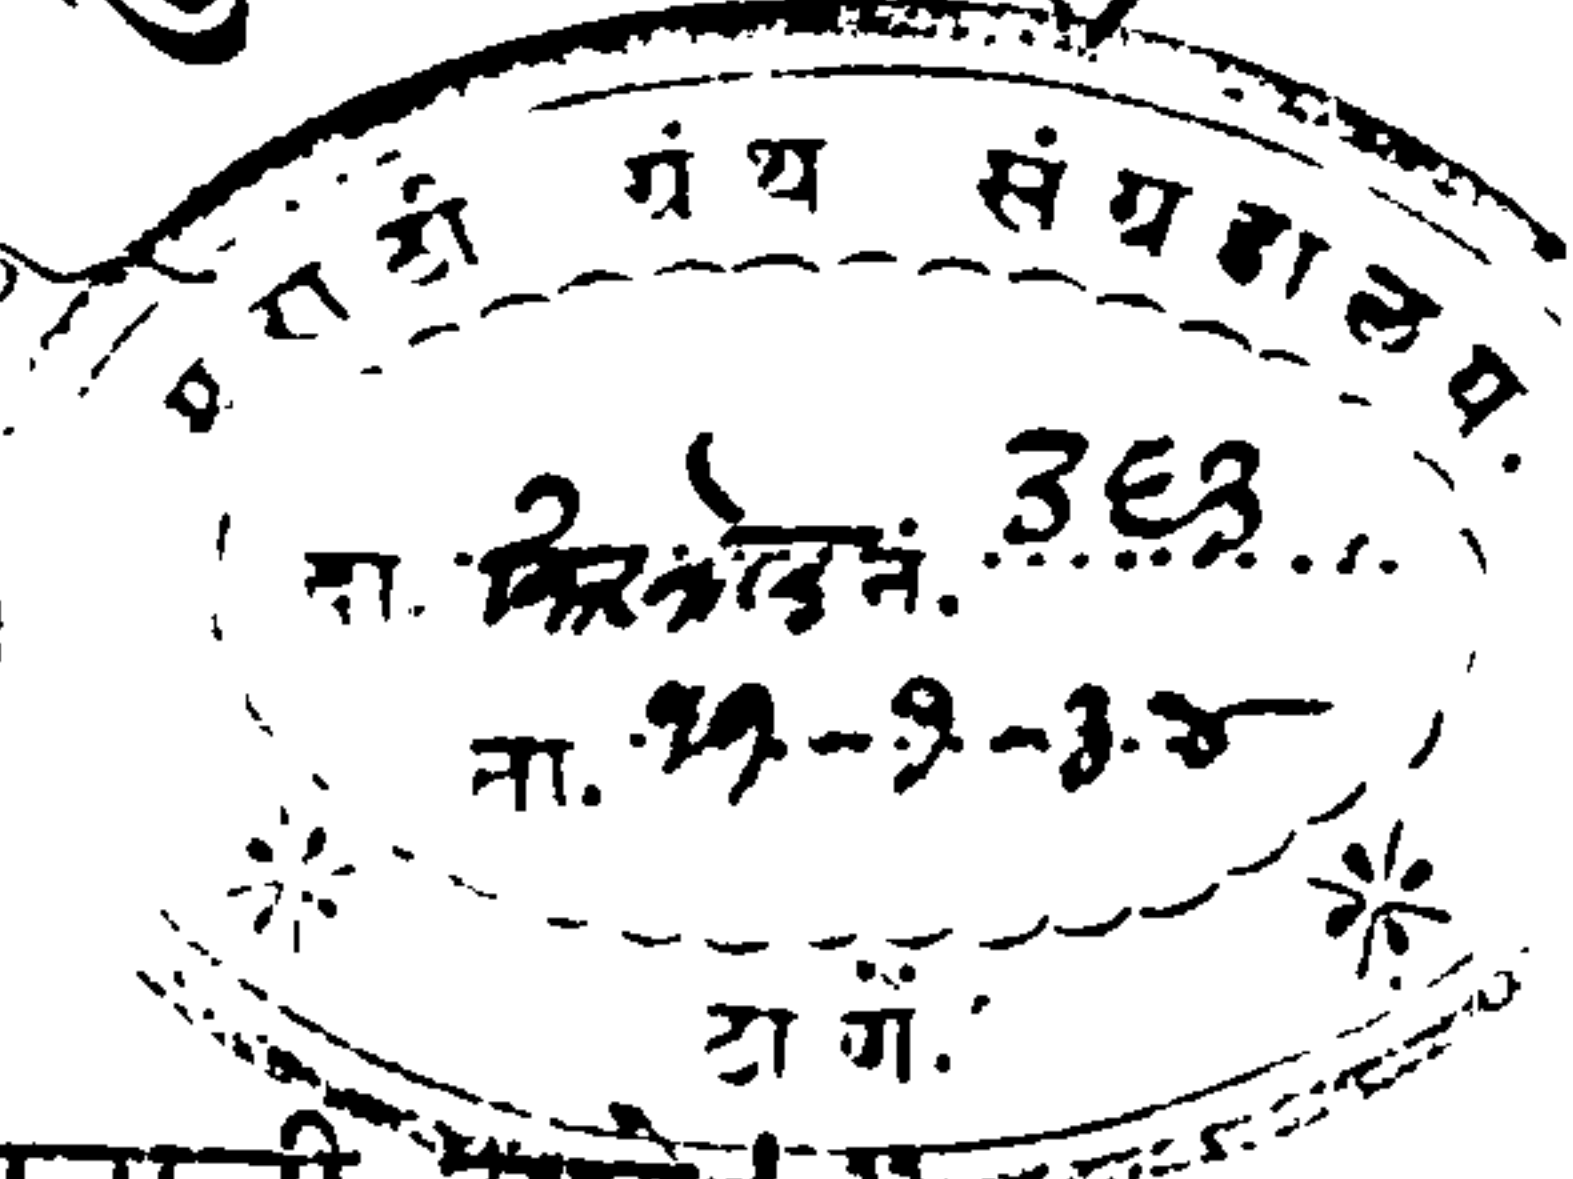 मराठी ग्रंथ संग्रहालय.
दा. नं. ३६२
ता. ११-१-३४
ठाणें.